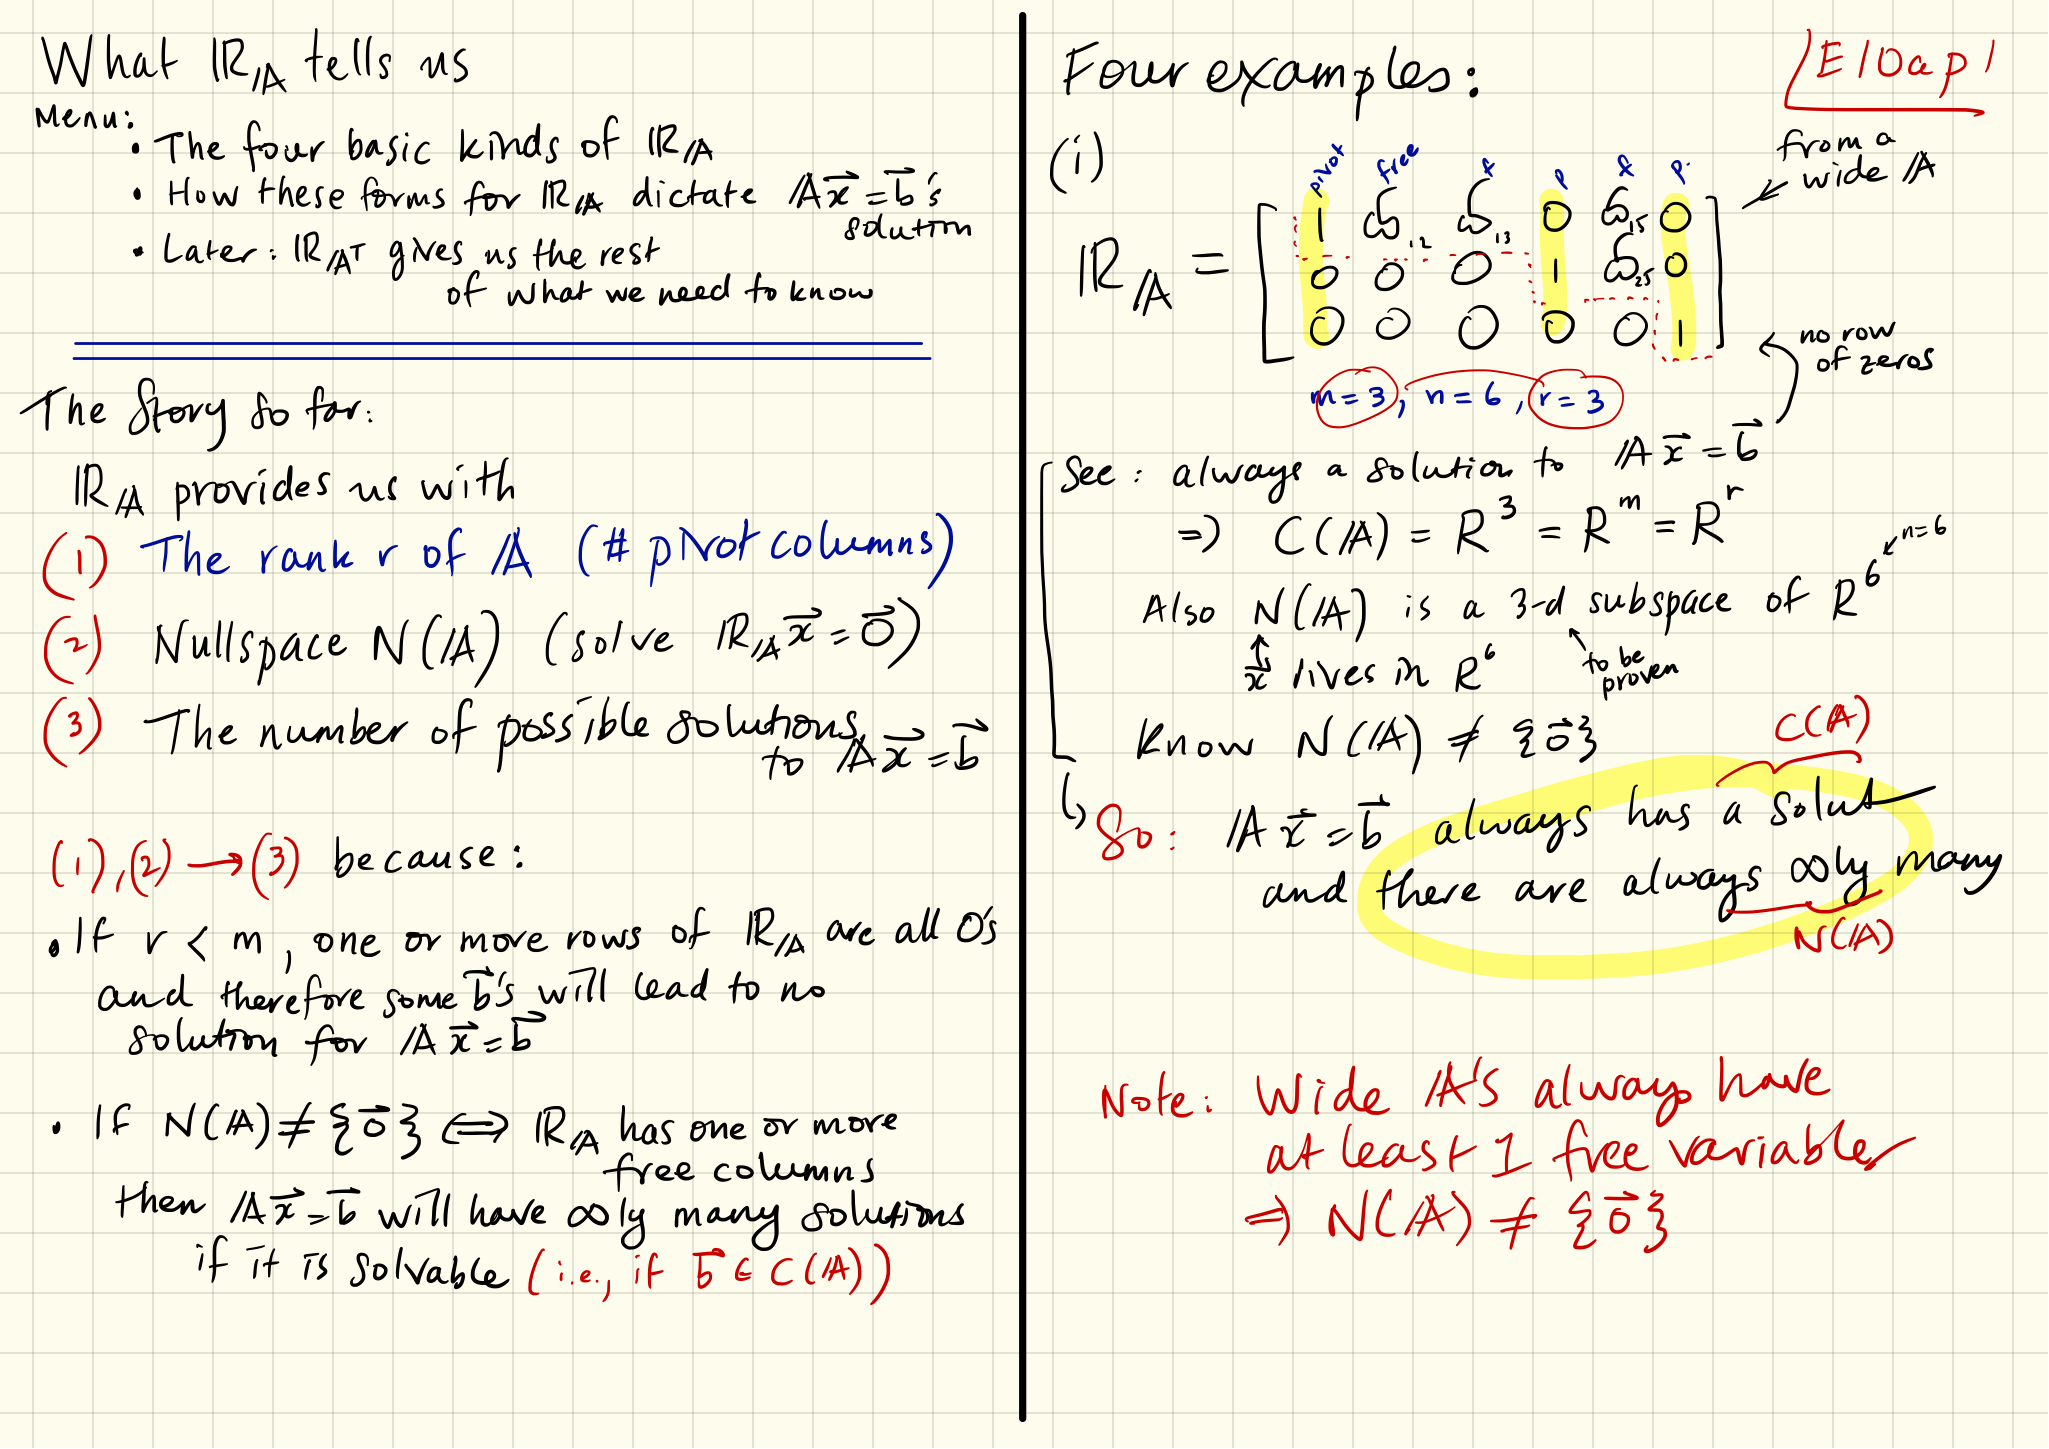 What ℝ_𝔸 tells us
Menu:
• The four basic kinds of ℝ_𝔸
• How these forms for ℝ_𝔸 dictate 𝔸x⃗ = b⃗'s
solution
• Later: ℝ_𝔸ᵀ gives us the rest
of what we need to know
The Story so far:
ℝ_𝔸 provides us with
(1) The rank r of 𝔸 (# pivot columns)
(2) Nullspace N(𝔸) (solve ℝ_𝔸 x⃗ = 0⃗)
(3) The number of possible solutions
to 𝔸x⃗ = b⃗
(1),(2) → (3) because:
• If r < m, one or more rows of ℝ_𝔸 are all 0's
and therefore some b⃗'s will lead to no
solution for 𝔸x⃗ = b⃗
• If N(𝔸) ≠ {0⃗} ⟺ ℝ_𝔸 has one or more
free columns
then 𝔸x⃗ = b⃗ will have ∞ly many solutions
if it is solvable (i.e., if b⃗ ∈ C(𝔸))
Four examples:
E10a p1
(i)
from a
wide 𝔸
pivot free f p f p.
ℝ_𝔸 =
1 ω₁₂ ω₁₃ 0 ω₁₅ 0
0 0 0 1 ω₂₅ 0
0 0 0 0 0 1
no row
of zeros
m = 3, n = 6, r = 3
See: always a solution to 𝔸x⃗ = b⃗
⇒ C(𝔸) = R³ = Rᵐ = Rʳ
n=6
Also N(𝔸) is a 3-d subspace of R⁶
x⃗ lives in R⁶
to be
proven
Know N(𝔸) ≠ {0⃗}
C(𝔸)
So: 𝔸x⃗ = b⃗ always has a solut
and there are always ∞ly many
N(𝔸)
Note: Wide 𝔸's always have
at least 1 free variable
⇒ N(𝔸) ≠ {0⃗}